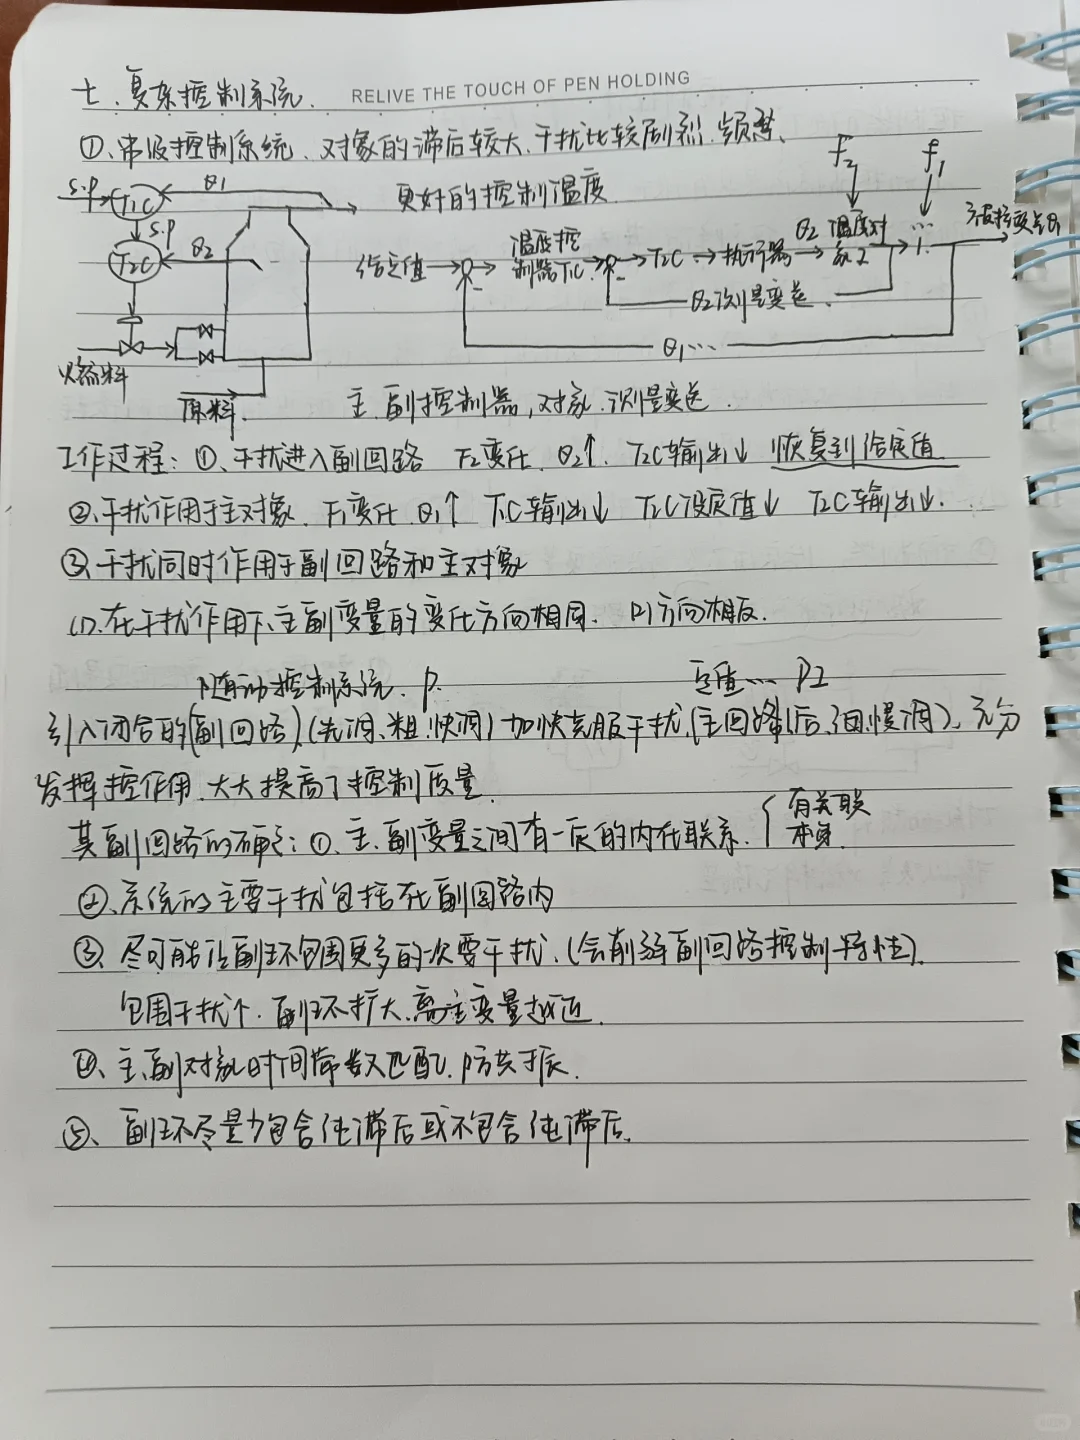 七、复杂控制系统.
RELIVE THE TOUCH OF PEN HOLDING
①、串级控制系统、对象的滞后较大、干扰比较剧烈、频繁、
更好的控制温度
S.P T1C θ1
S.P
T2C θ2
燃料
原料
f2 f1
给定值 温度控制器T1C T2C 执行器 θ2 温度对象2 1... 主被控变量θ1
θ2测量变送
θ1...
主、副控制器, 对象、测量变送.
工作过程: ①、干扰进入副回路 F2变化、θ2↑ T2C输出↓ 恢复到给定值
②、干扰作用于主对象、F1变化、θ1↑ T1C输出↓ T2C设定值↓ T2C输出↓.
③、干扰同时作用于副回路和主对象
(1)、在干扰作用下、主副变量的变化方向相同、 (2)方向相反.
随动控制系统、P. 定值... PI
引入闭合的(副回路)、(先调、粗、快调) 加快克服干扰、(主回路(后、细、慢调)、充分
发挥控作用、大大提高了控制质量.
其副回路的确定: ①、主、副变量之间有一定的内在联系、{有关联
本身.
②、系统的主要干扰包括在副回路内
③、尽可能让副环包围更多的次要干扰、(会削弱副回路控制特性).
包围干扰个、副环扩大、离主变量越近.
④、主、副对象时间常数又匹配、防共振.
⑤、副环尽量少包含纯滞后或不包含纯滞后.